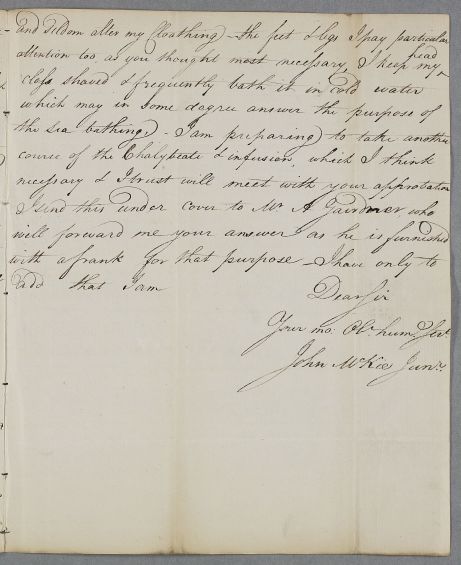 and Seldom alter my Cloathing) – the feet & legs I pay particular
attention too as you thought most necessary, I keep my head
close shaved & frequently bath it in Cold water
which may in Some degree answer the purpose of
the Sea bathing) – I am preparing to take another
course of the Chalybeate & infusion, which I think
necessary & I trust will meet with your approbation
I send this under cover to Mr A Gairdner who
will forward me your answer as he is furnished
with a frank for that purpose – I have only to
add that I am
Dear Sir
Your mo. Obt. hume. Servt.
John McKie Junr.